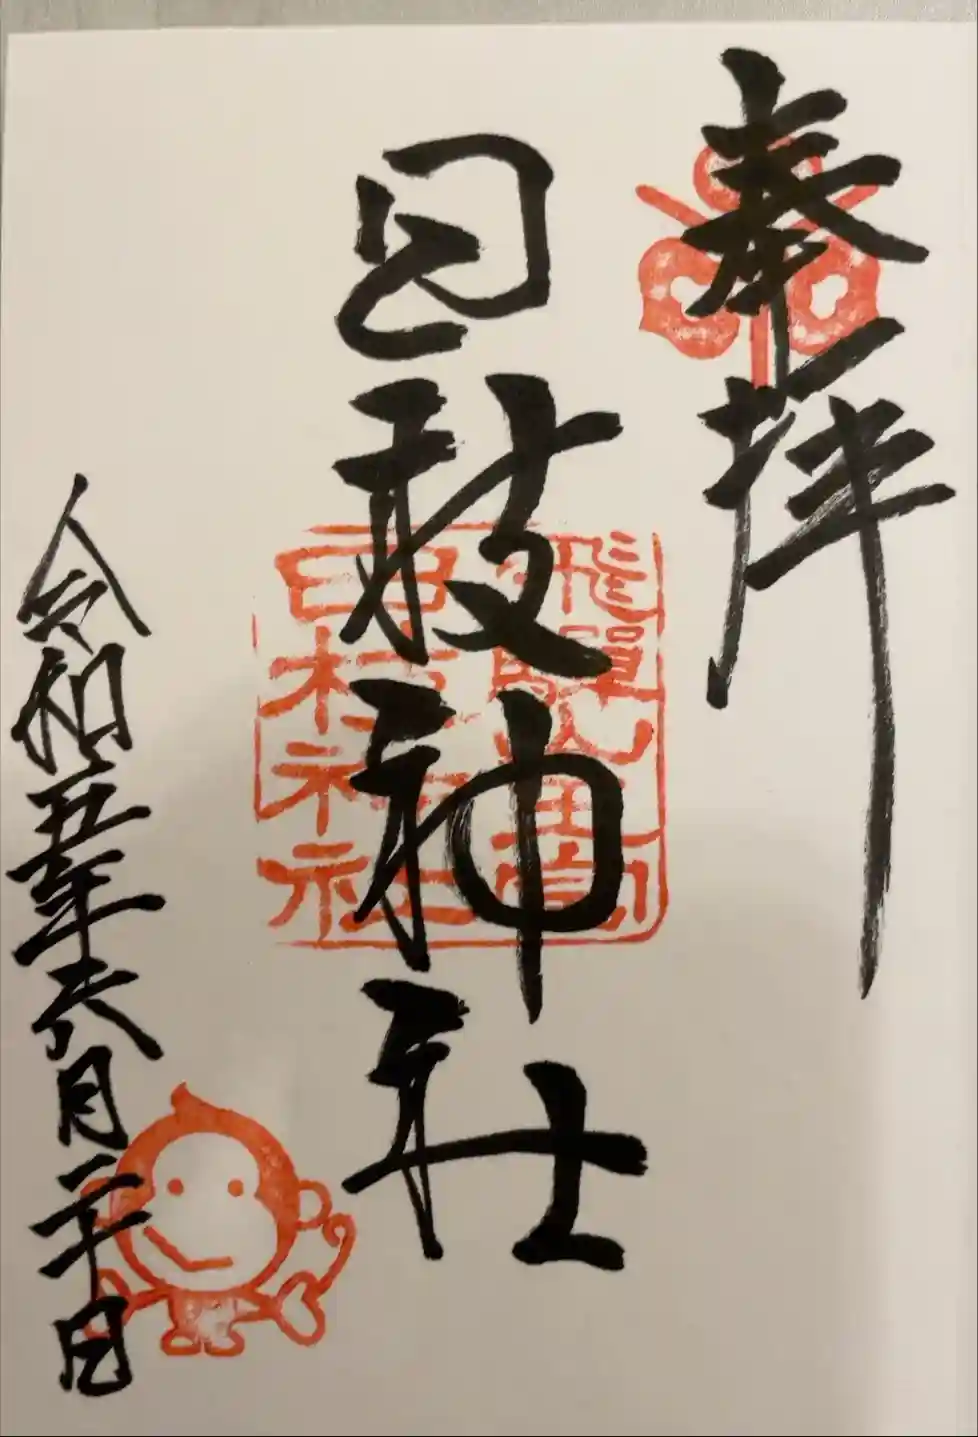 奉拝
日枝神社
飛騨山王宮
日枝神社
令和五年六月二十日